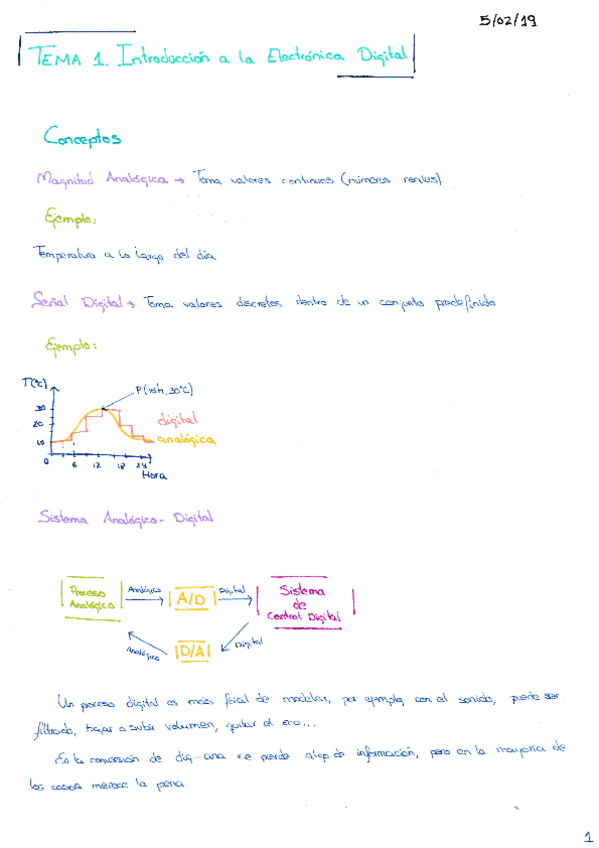 5/02/19
TEMA 1. Introducción a la Electrónica Digital
Conceptos
Magnitud Analógica → Toma valores continuos (números reales)
Ejemplo:
Temperatura a lo largo del día
Señal Digital → Toma valores discretos dentro de un conjunto predefinido
Ejemplo:
T(ºC)
P(15h, 30ºC)
30
20
10
0 6 12 18 24
Hora
digital
analógica
Sistema Analógico-Digital
Proceso Analógico
Analógico
A/D
Digital
Sistema de Control Digital
Analógico
D/A
Digital
Un proceso digital es más fácil de modelar, por ejemplo, con el sonido, puede ser
filtrado, bajar o subir volumen, quitar el eco...
En la conversión de dig-ana se pierde algo de información, pero en la mayoría de
los casos merece la pena.
1